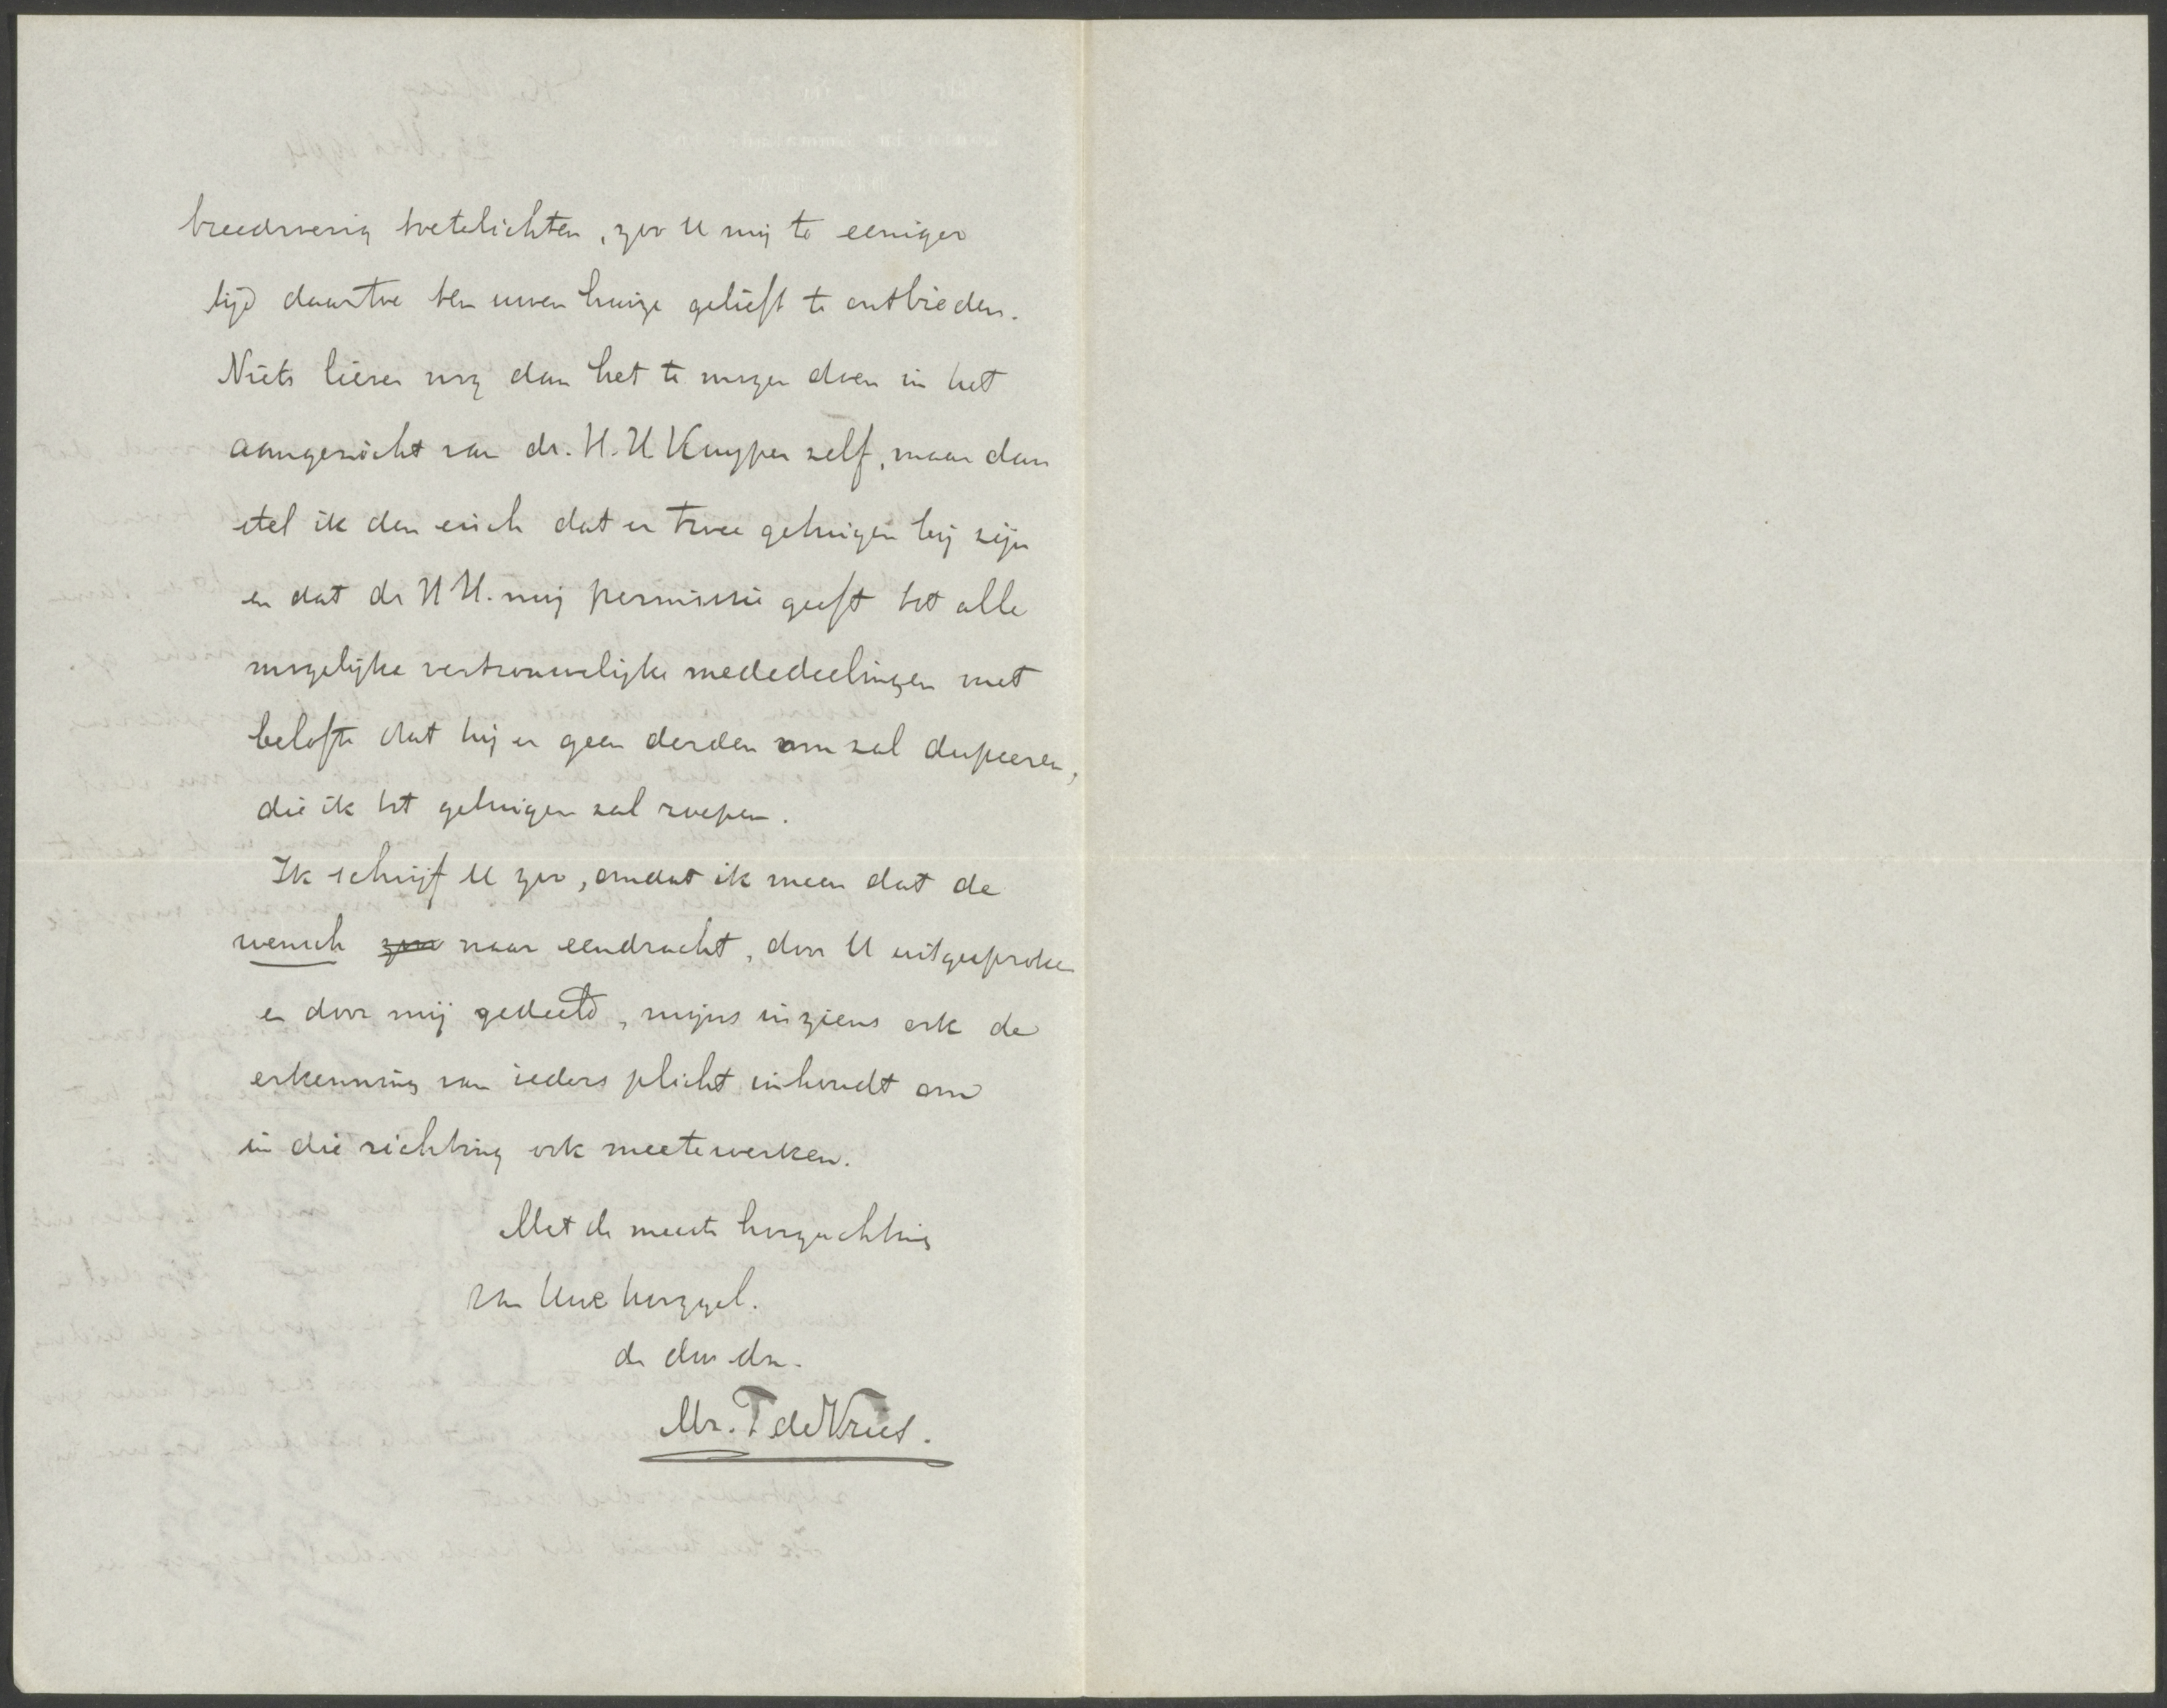 breedvoerig toetelichten, zoo U mij te eeniger
tijd daartoe ten uwen huize gelieft te ontbieden.
Niets liever nog dan het te mogen doen in het
aangezicht van dr. H. H. Kuyper zelf, maar dan
stel ik den eisch dat er twee getuigen bij zijn
en dat dr H H. mij permissie geeft tot alle
mogelijke vertrouwelijke mededeelingen met
belofte dat hij er geen derden om zal dupeeren,
die ik tot getuigen zal roepen.
Ik schrijf U zoo, omdat ik meen dat de
wensch naar eendracht, door U uitgesproken
en door mij gedeeld, mijns inziens ook de
erkenning van ieders plicht inhoudt om
in die richting ook meetewerken.
Met de meeste hoogachting
van Uwe hoogged.
de dw. dr.
Mr. T de Vries.